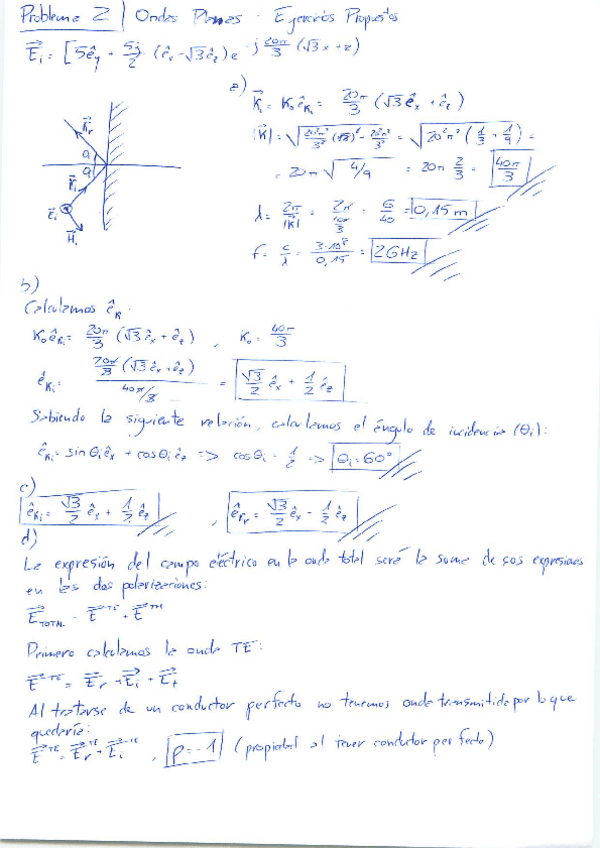 Problema 2 | Ondas Planas - Ejercicios Propuestos
E⃗i = [5êy + 5j/2 (êx - √3êz)e^-j 20π/3 (√3x+z)
a)
K⃗i = K0 êKi = 20π/3 (√3êx + êz)
= 20π √4/9 = 20π 2/3 = 40π/3
λ = 2π/|K| = 2π/(40π/3) = 6/40 = 0,15 m
f = c/λ = 3·10^8/0,15 = 2GHz
K⃗r
a
a
K⃗i
E⃗i
H⃗i
b)
Calculamos êK.
K0 êKi = 20π/3 (√3êx + êz) , K0 = 40π/3
êKi = 20π/3 (√3êx + êz) / 40π/3 = √3/2 êx + 1/2 êz
Sabiendo la siguiente relación, calculamos el ángulo de incidencia (θi):
êKi = sinθi êx + cosθi êz => cosθi = 1/2 => θi = 60°
c)
êKi = √3/2 êx + 1/2 êz , êKr = √3/2 êx - 1/2 êz
d)
La expresión del campo eléctrico en la onda total será la suma de sus expresiones
en las dos polarizaciones:
E⃗TOTAL = E⃗^TE + E⃗^TM
Primero calculamos la onda TE:
E⃗^TE = E⃗r + E⃗i + E⃗t
Al tratarse de un conductor perfecto no tenemos onda transmitida por lo que
quedaría:
E⃗^TE = E⃗r^TE + E⃗i^TE , ρ = -1 (propiedad al tener conductor perfecto)